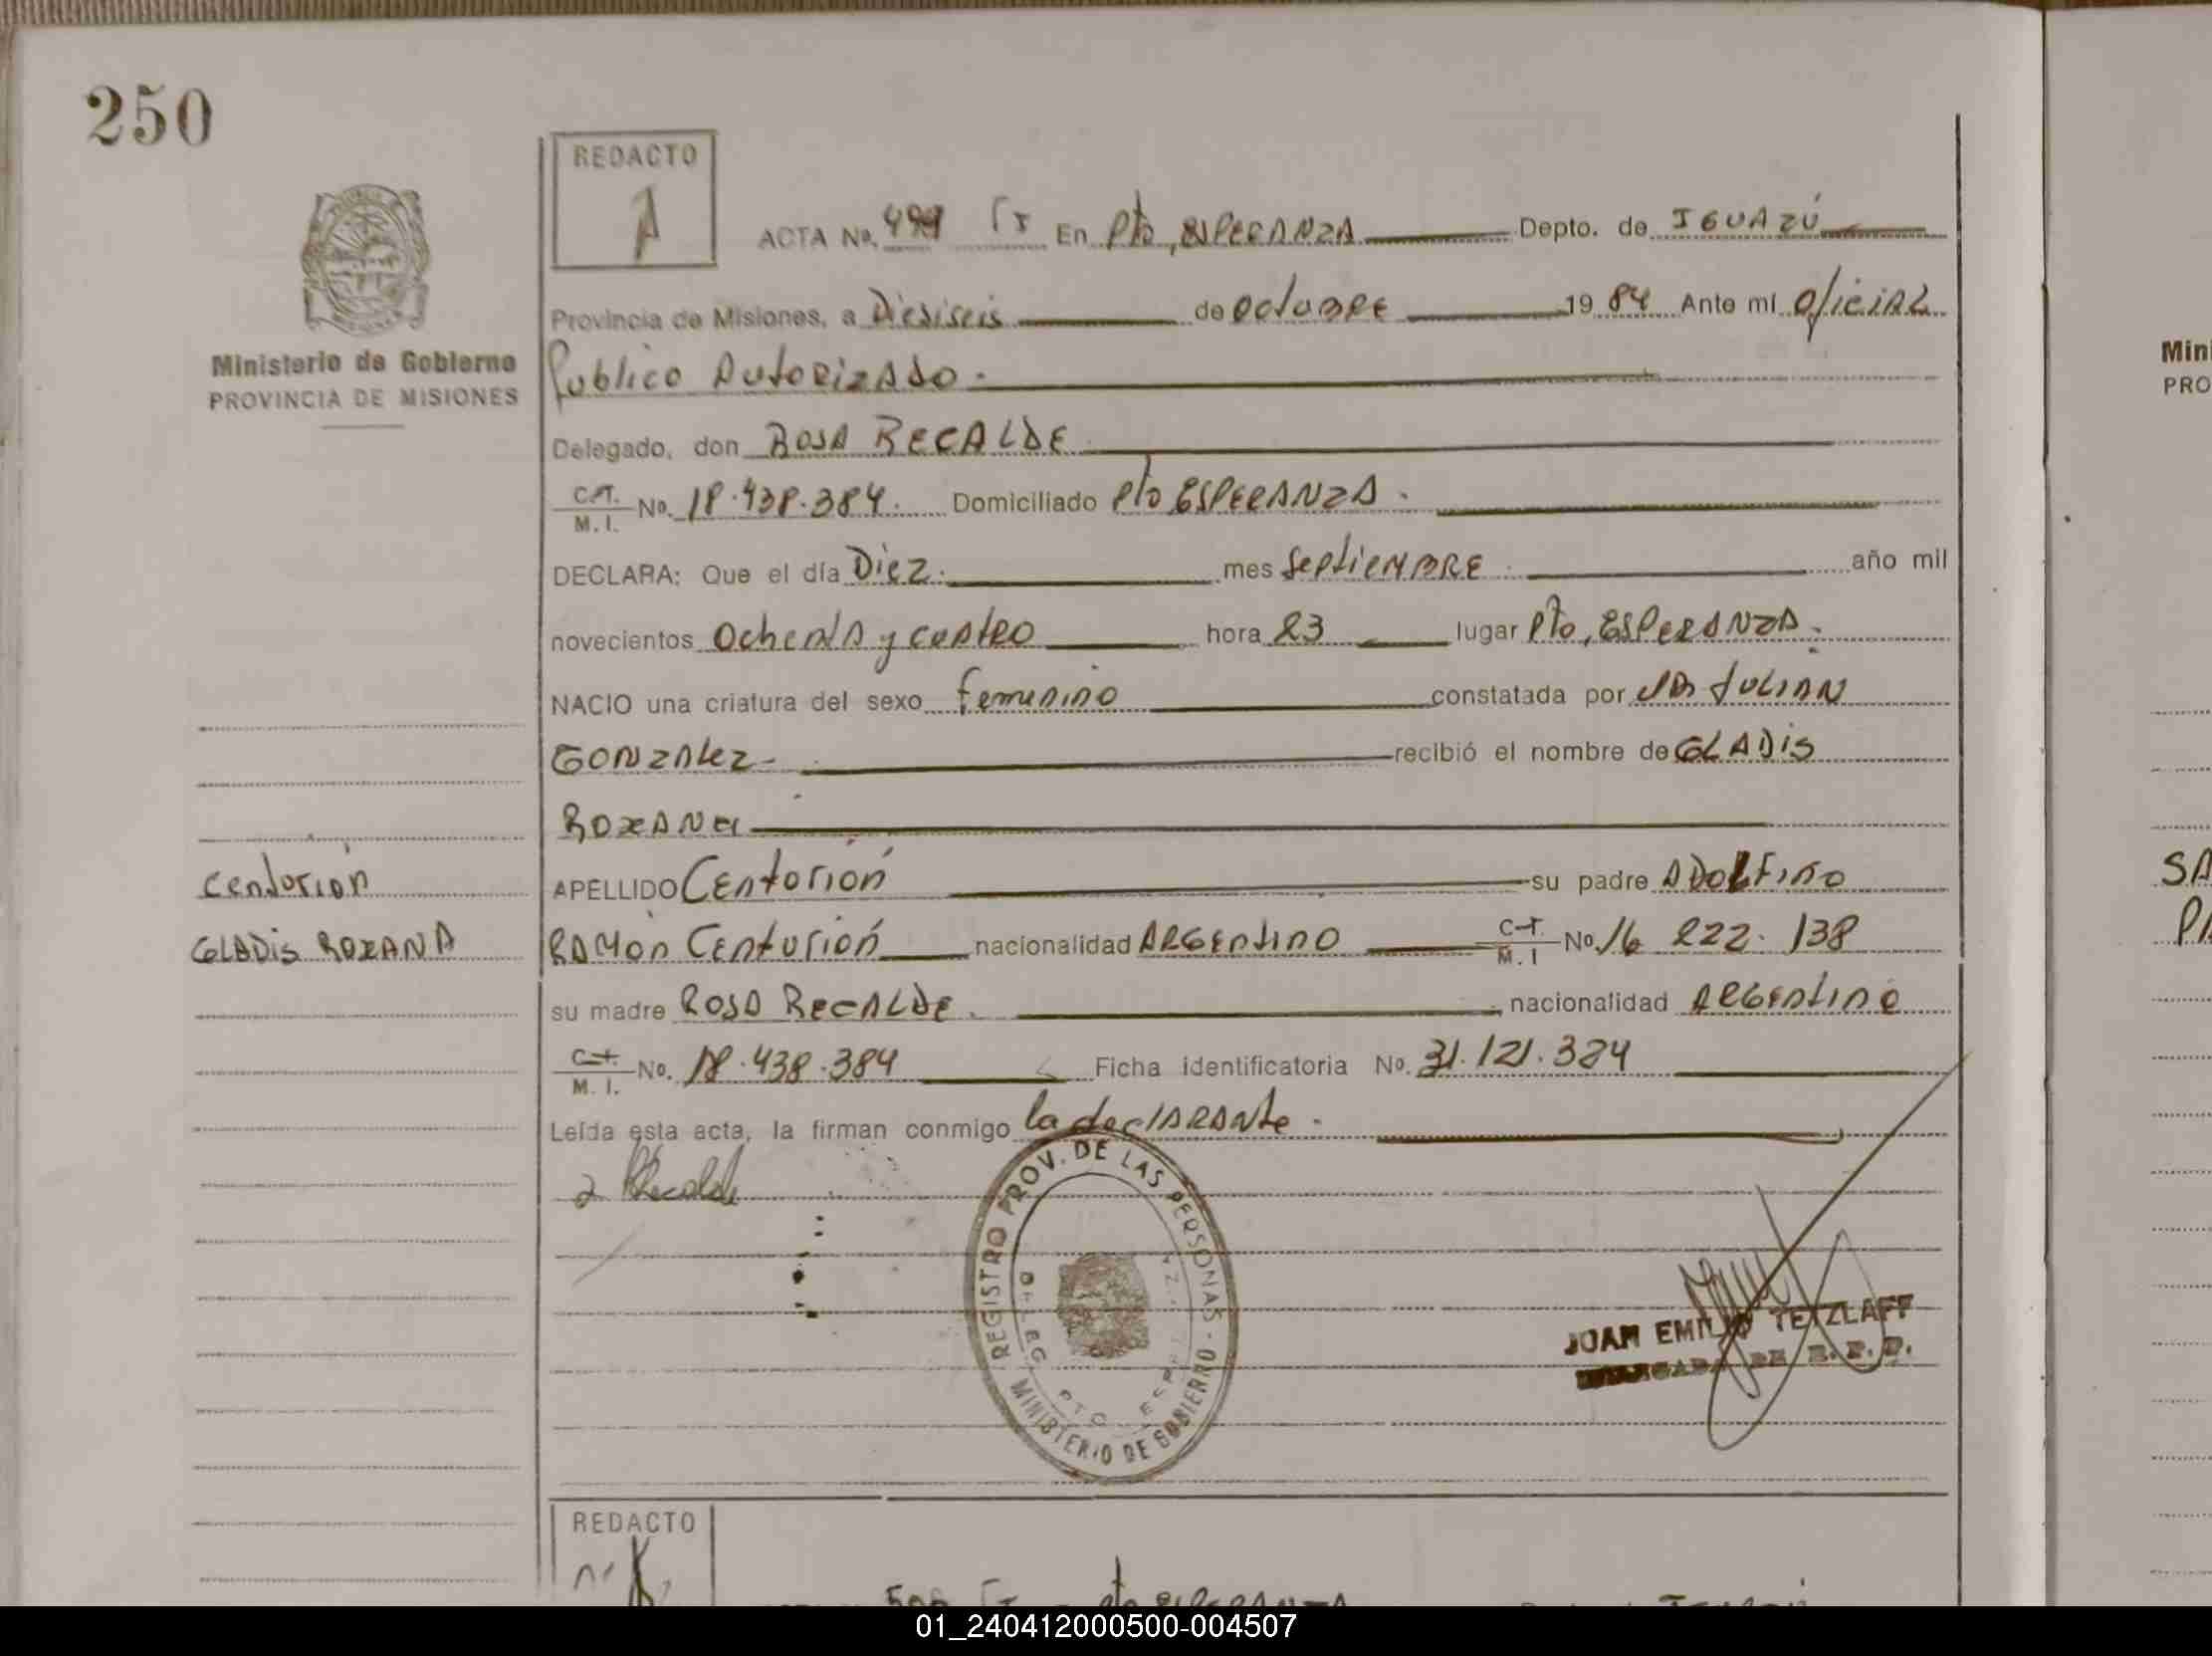 250
REDACTO
A
ACTA No. 499 Tx En Pto, ESPERANZA Depto. de IGUAZÚ
Provincia de Misiones, a Diesiseis de octubre 1984 Ante mi oficial
Ministerio de Gobierno
PROVINCIA DE MISIONES
Publico Autorizado.
Delegado, don ROSA RECALDE
C.I. M.I. No. 18.438.384. Domiciliado Pto ESPERANZA.
DECLARA: Que el día Diez. mes septiembre. año mil
novecientos ochenta y cuatro hora 23 lugar Pto, ESPERANZA.
NACIO una criatura del sexo femenino constatada por JULIAN
GONZALEZ- recibió el nombre de GLADIS
ROXANA
Centurion APELLIDO Centurión su padre ADOLFINO
GLADIS ROXANA RAMON Centurión nacionalidad ARGENTINO C.I. M.I No. 16 222.138
su madre ROSA RECALDE. nacionalidad ARGENTINO
C.I. M.I. No. 18.438.384 Ficha identificatoria No. 31.121.324
Leída esta acta, la firman conmigo la declarante.
Recalde
REGISTRO PROV. DE LAS PERSONAS - MINISTERIO DE GOBIERNO
PTO. ESPERANZA
JUAN EMILIO TETZLAFF
DE
REDACTO
Min
PRO
SA
PA
01_240412000500-004507